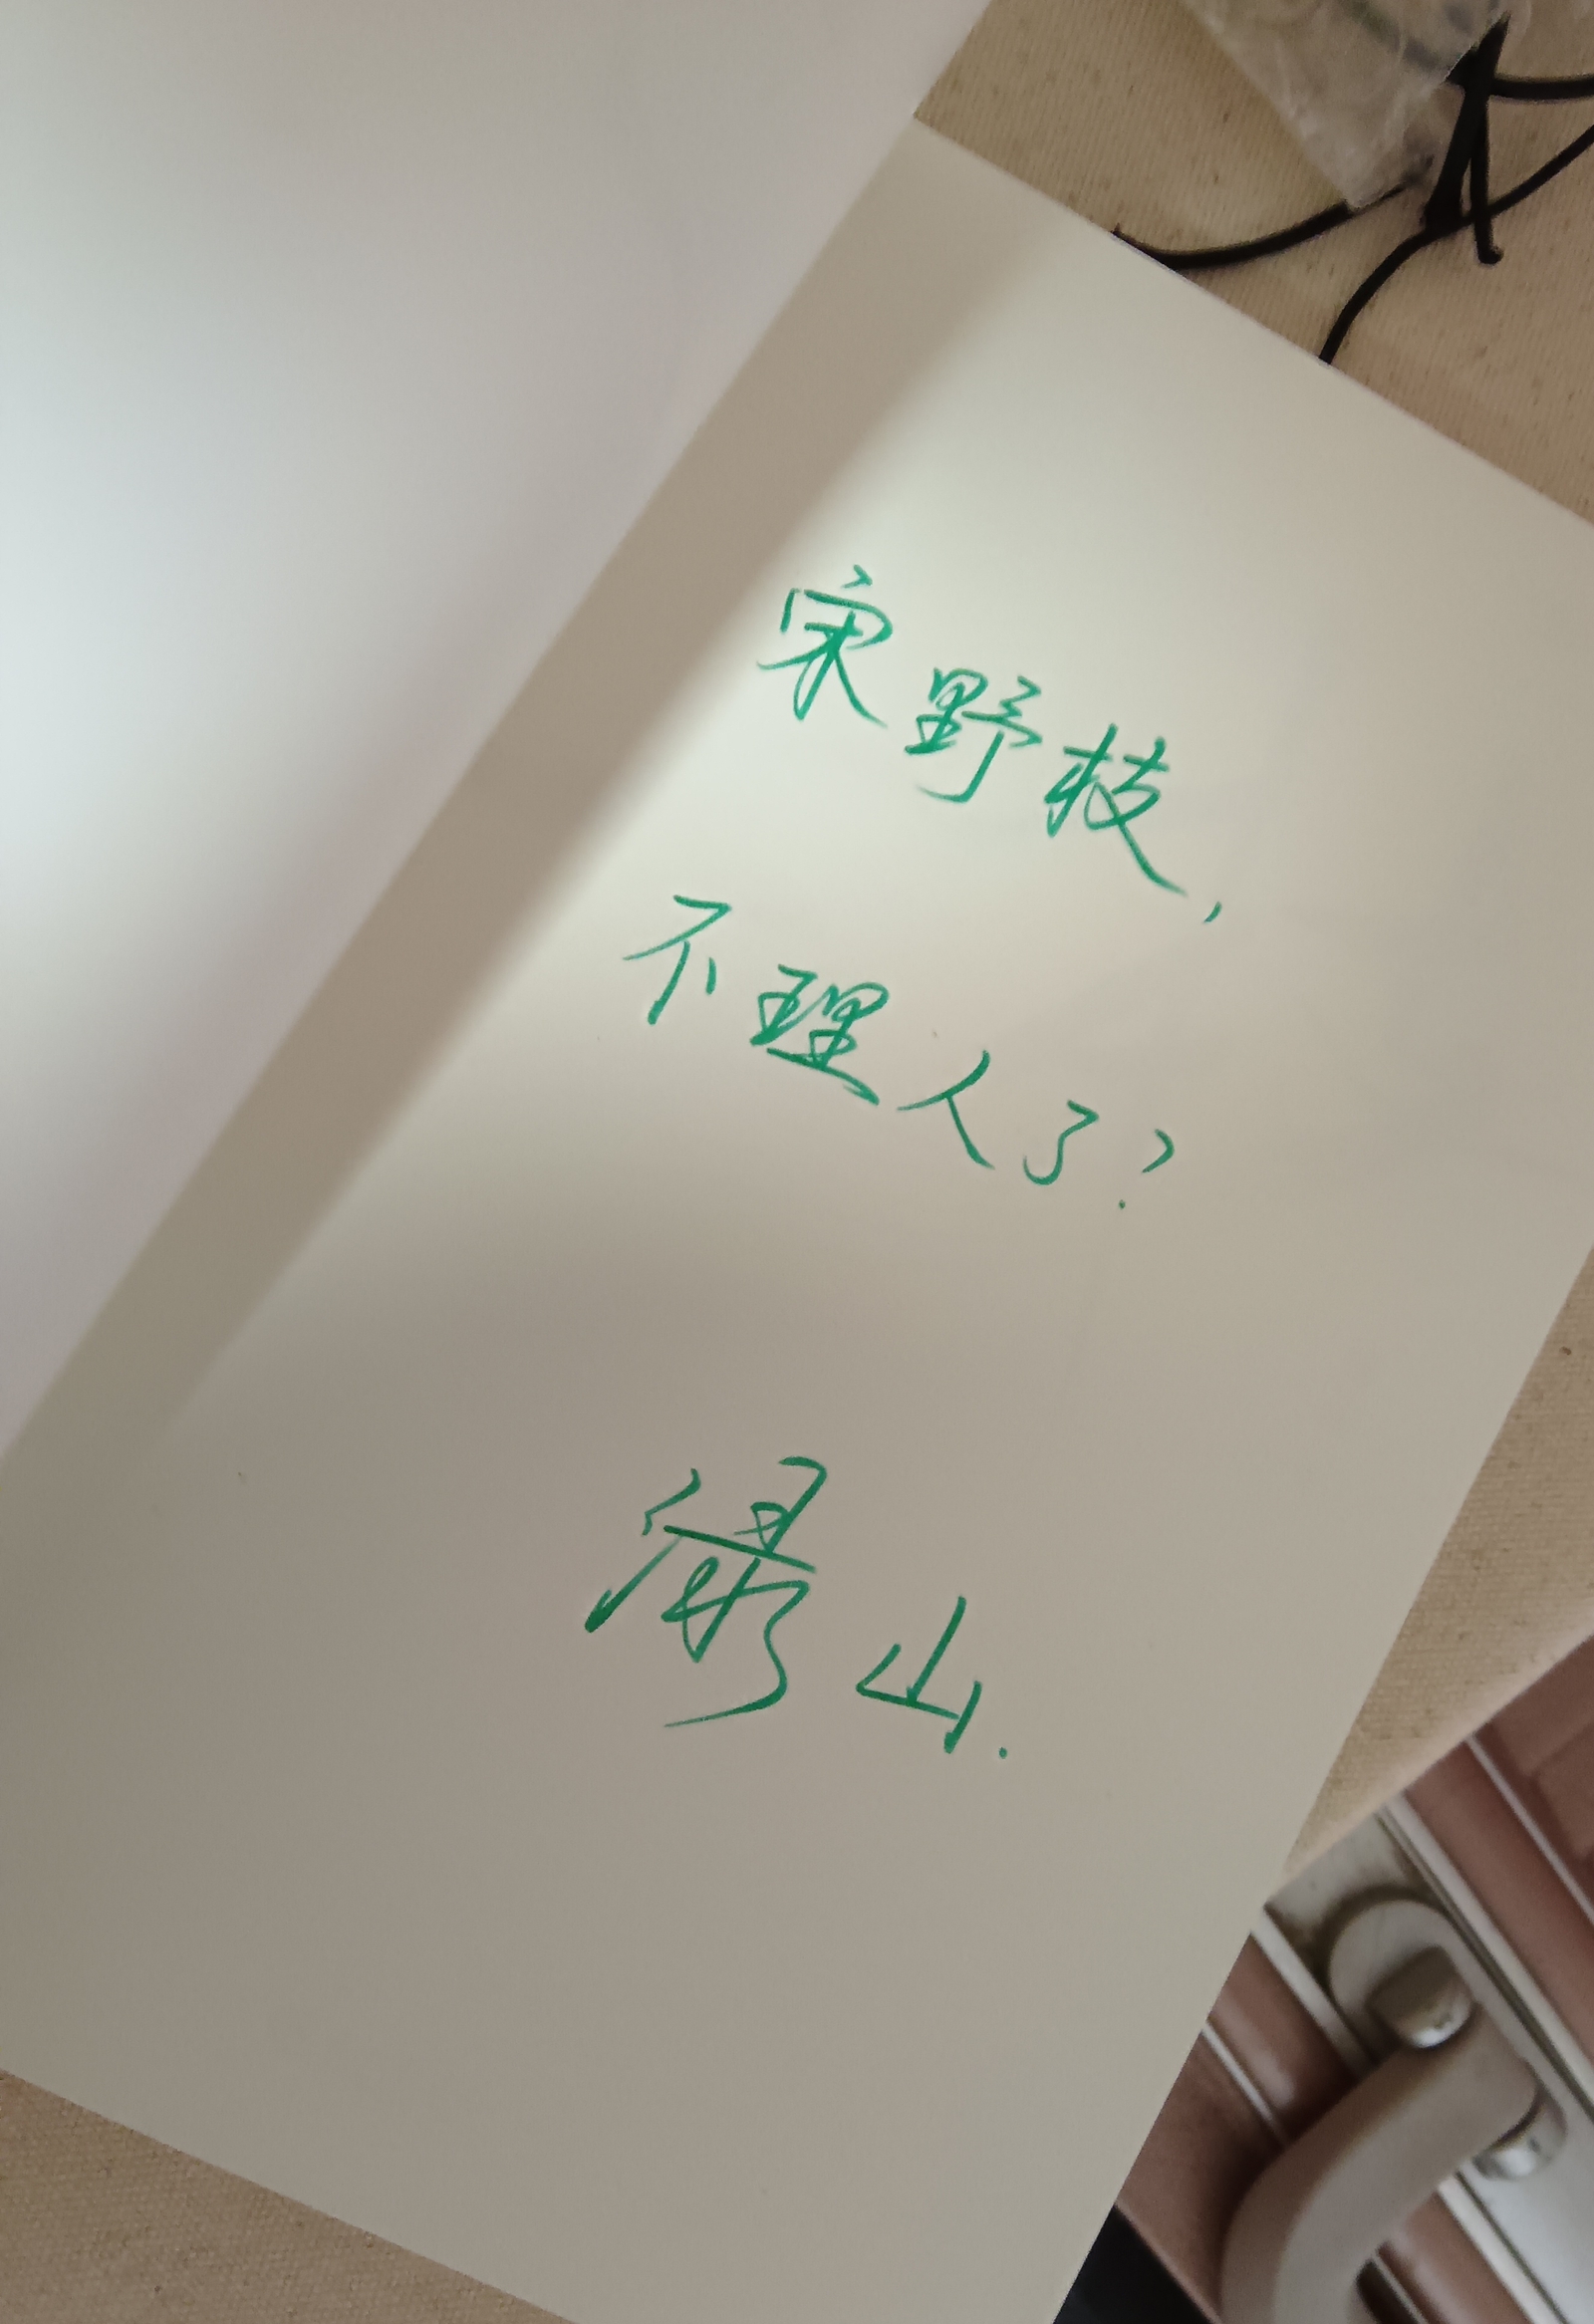 宋野枝,
不理人了?
缘山.